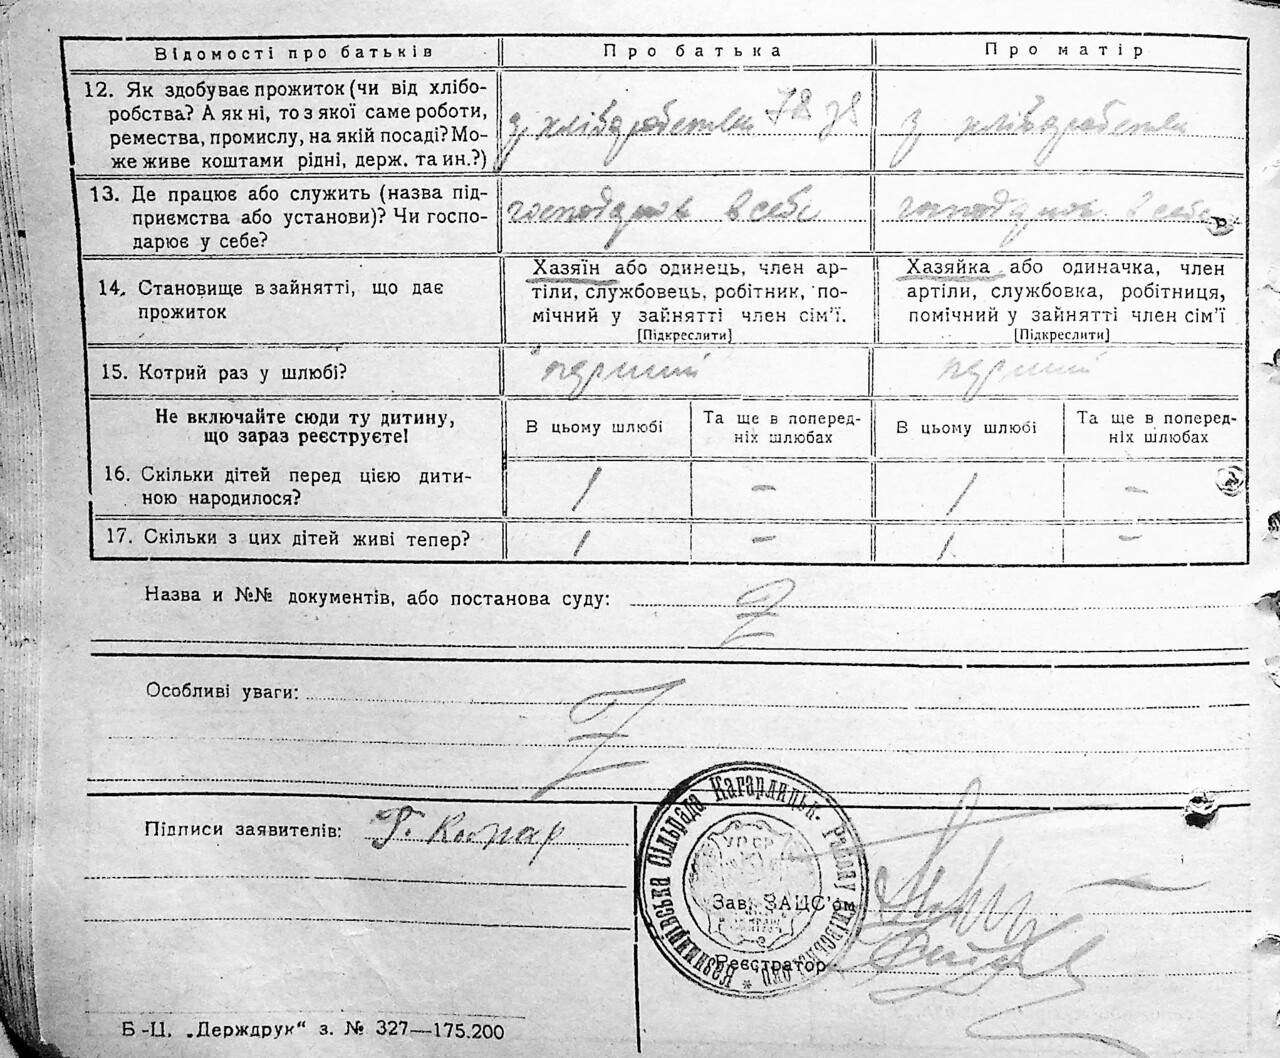 Відомості про батьків
Про батька
Про матір
12. Як здобуває прожиток (чи від хлібо-
робства? А як ні, то з якої саме роботи,
ремества, промислу, на якій посаді? Мо-
же живе коштами рідні, держ. та ин.?)
з хліборобства
з хліборобства
13. Де працює або служить (назва під-
приємства або установи)? Чи госпо-
дарює у себе?
господарює в себе
господарює в себе
14. Становище в зайнятті, що дає
прожиток
Хазяїн або одинець, член ар-
тіли, службовець, робітник, по-
мічний у зайнятті член сім'ї.
[Підкреслити]
Хазяйка або одиначка, член
артіли, службовка, робітниця,
помічний у зайнятті член сім'ї
[Підкреслити]
15. Котрий раз у шлюбі?
перший
перший
Не включайте сюди ту дитину,
що зараз реєструєте!
В цьому шлюбі
Та ще в поперед-
ніх шлюбах
В цьому шлюбі
Та ще в поперед-
ніх шлюбах
16. Скільки дітей перед цією дити-
ною народилося?
1
–
1
–
17. Скільки з цих дітей живі тепер?
1
–
1
–
Назва и №№ документів, або постанова суду:
Особливі уваги:
Підписи заявителів:
Казимирівська Сільрада Кагарлицьк. Району
УПСР
Зав. ЗАЦС'ом
Реєстратор
Б-Ц. „Держдрук" з. № 327—175.200